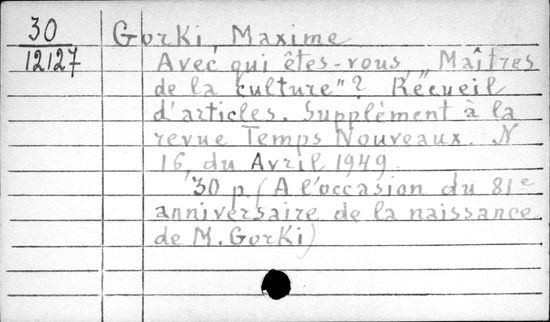 30
12127
Gorki, Maxime
Avec qui êtes-vous, "Maîtres
de la culture"? Recueil
d'articles. Supplément à la
revue Temps Nouveaux. N
16, du Avril 1949.
30 p. (A l'occasion du 81e
anniversaire de la naissance
de M. Gorki)